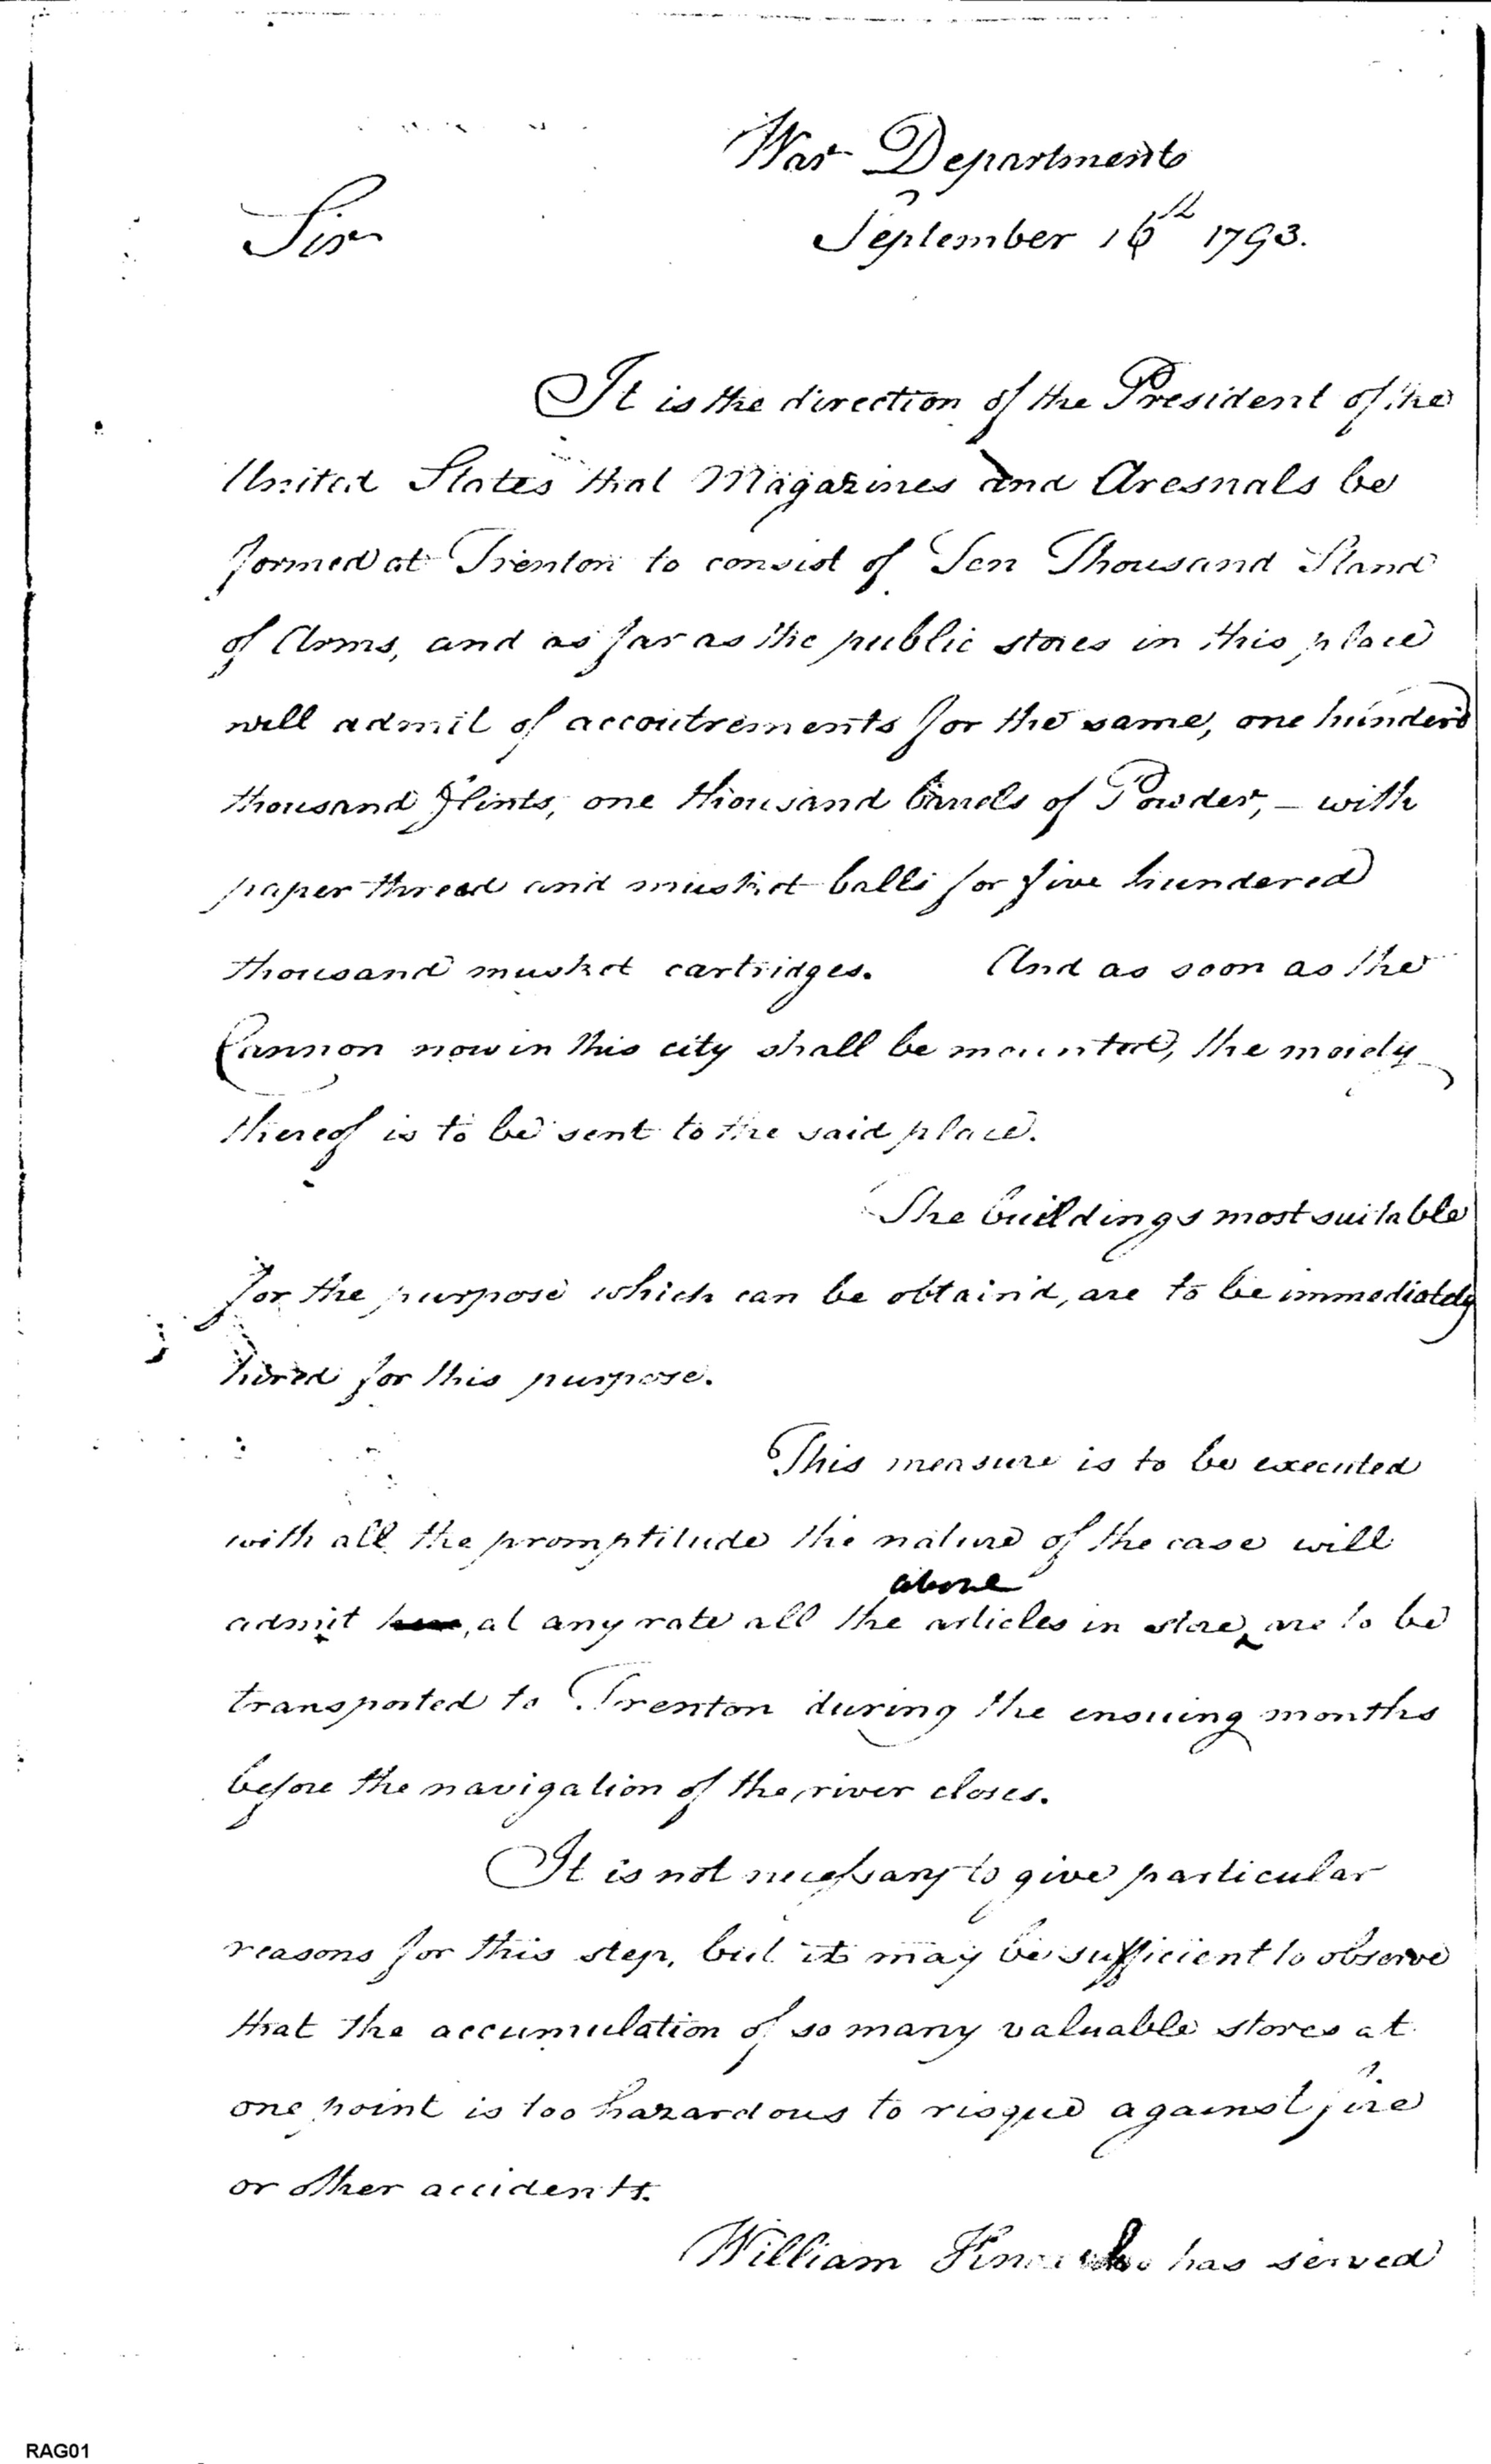 War Department
Sir
September 16th 1793.
It is the direction of the President of the
United States that Magazines and Aresnals be
formed at Trenton to consist of Ten Thousand Stand
of Arms, and as far as the public stores in this place
will admit of accoutrements for the same, one hunderd
thousand flints, one thousand barrels of Powder, — with
paper thread and musket balls for five hundered
thousand musket cartridges. And as soon as the
Cannon now in this city shall be mounted, the moiety
thereof is to be sent to the said place.
The buildings most suitable
for the purpose which can be obtain'd, are to be immediately
hired for this purpose.
This measure is to be executed
with all the promptitude the nature of the case will
above
admit, at any rate all the articles in store are to be
transported to Trenton during the ensuing months
before the navigation of the river closes.
It is not necessary to give particular
reasons for this step, but it may be sufficient to observe
that the accumulation of so many valuable stores at
one point is too hazardous to risque against fire
or other accidents.
William has served
RAG01